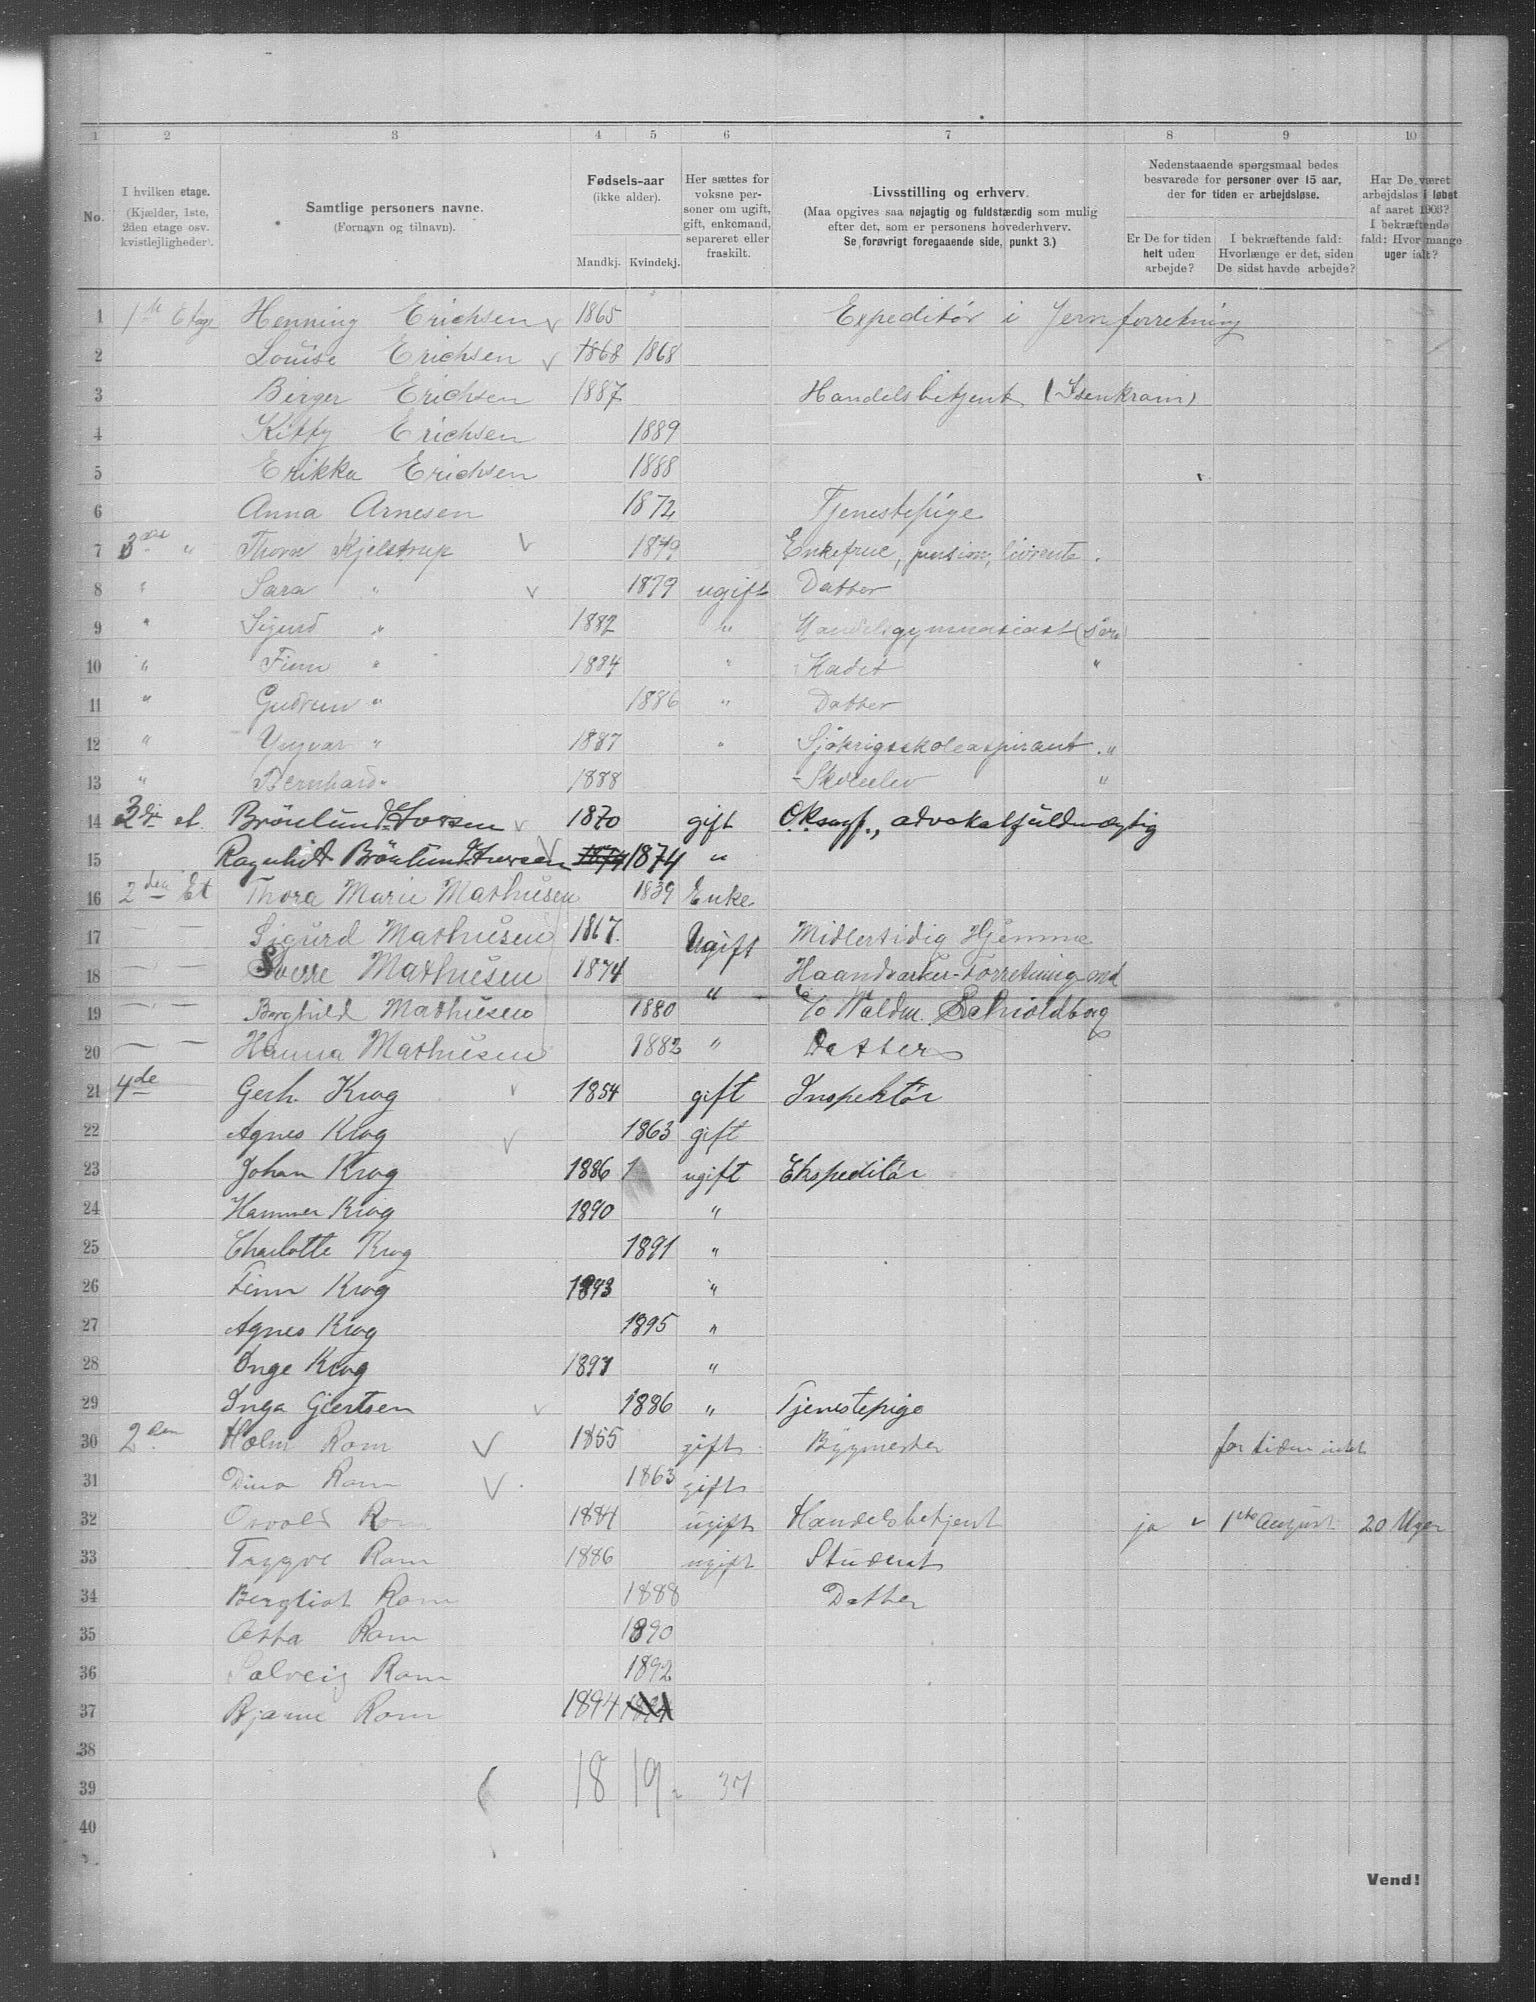 1 2 3 4 5 6 7 8 9 10
No.
I hvilken etage.
(Kjælder, 1ste,
2den etage osv.
kvistlejligheder).
Samtlige personers navne.
(Fornavn og tilnavn).
Fødsels-aar
(ikke alder).
Mandkj. Kvindekj.
Her sættes for
voksne per-
soner om ugift,
gift, enkemand,
separeret eller
fraskilt.
Livsstilling og erhverv.
(Maa opgives saa nøjagtig og fuldstændig som mulig
efter det, som er personens hovederhverv.
Se forøvrigt foregaaende side, punkt 3.)
Nedenstaaende spørgsmaal bedes
besvarede for personer over 15 aar,
der for tiden er arbejdsløse.
Er De for tiden
helt uden
arbejde?
I bekræftende fald:
Hvorlænge er det, siden
De sidst havde arbejde?
Har De været
arbejdsløs i løbet
af aaret 1903?
I bekræftende
fald: Hvor mange
uger ialt?
1 Henning Erichsen 1865 Expeditör i Jernforretning
2 Louise Erichsen 1868 1868
3 Birger Erichsen 1887 Handelsbetjent (Isenkram)
4 Kitty Erichsen 1889
5 Erikka Erichsen 1888
6 Anna Arnesen 1872 Tjenestepige
7 3die " Kjelstrup 1849 Enkefrue, pension, livrente.
8 " Sara " 1879 ugift Datter
9 " Sigurd " 1882 " Handelsgymnasiast
10 " Finn " 1884 " Kadet "
11 " Gudrun " 1886 " Datter
12 " Yngvar " 1887 " Sjökrigsskoleaspirant "
13 " Bernhard " 1888 Skoleelev "
14 3die et. 1870 gift O.R.sagf., advokatfuldmægtig
15 Ragnhild 1874 1874 "
16 2den Et Thora Marie Mathiesen 1839 Enke
17 — — Sigurd Mathiesen 1867. Ugift Midlertidig Hjemme
18 — — Sverre Mathiesen 1874 " Haandværker-Forretning
19 — — Borghild Mathiesen 1880 c/o Waldm. Schioldborg
20 — — Hanna Mathiesen 1882 " Datter
21 4de Gerh. Krog 1854 gift Inspektör
22 Agnes Krog 1863 gift
23 Johan Krog 1886 1 ugift Ekspeditör
24 Hammer Krog 1890 "
25 Charlotte Krog 1891 "
26 Finn Krog 1893 "
27 Agnes Krog 1895 "
28 Inge Krog 1897 "
29 Inga Giertsen 1886 " Tjenestepige
30 2den Holm Rom 1855 gift Bygmester for tiden intet
31 Dina Rom 1863 gift
32 Osvald Rom 1884 ugift Handelsbetjent ja 1ste August 20 Uger
33 Trygve Rom 1886 ugift Student
34 Bergliot Rom 1888 Datter
35 Asta Rom 1890
36 Solveig Rom 1892
37 Bjarne Rom 1894 1894
38
39 18 19 37
40
Vend!